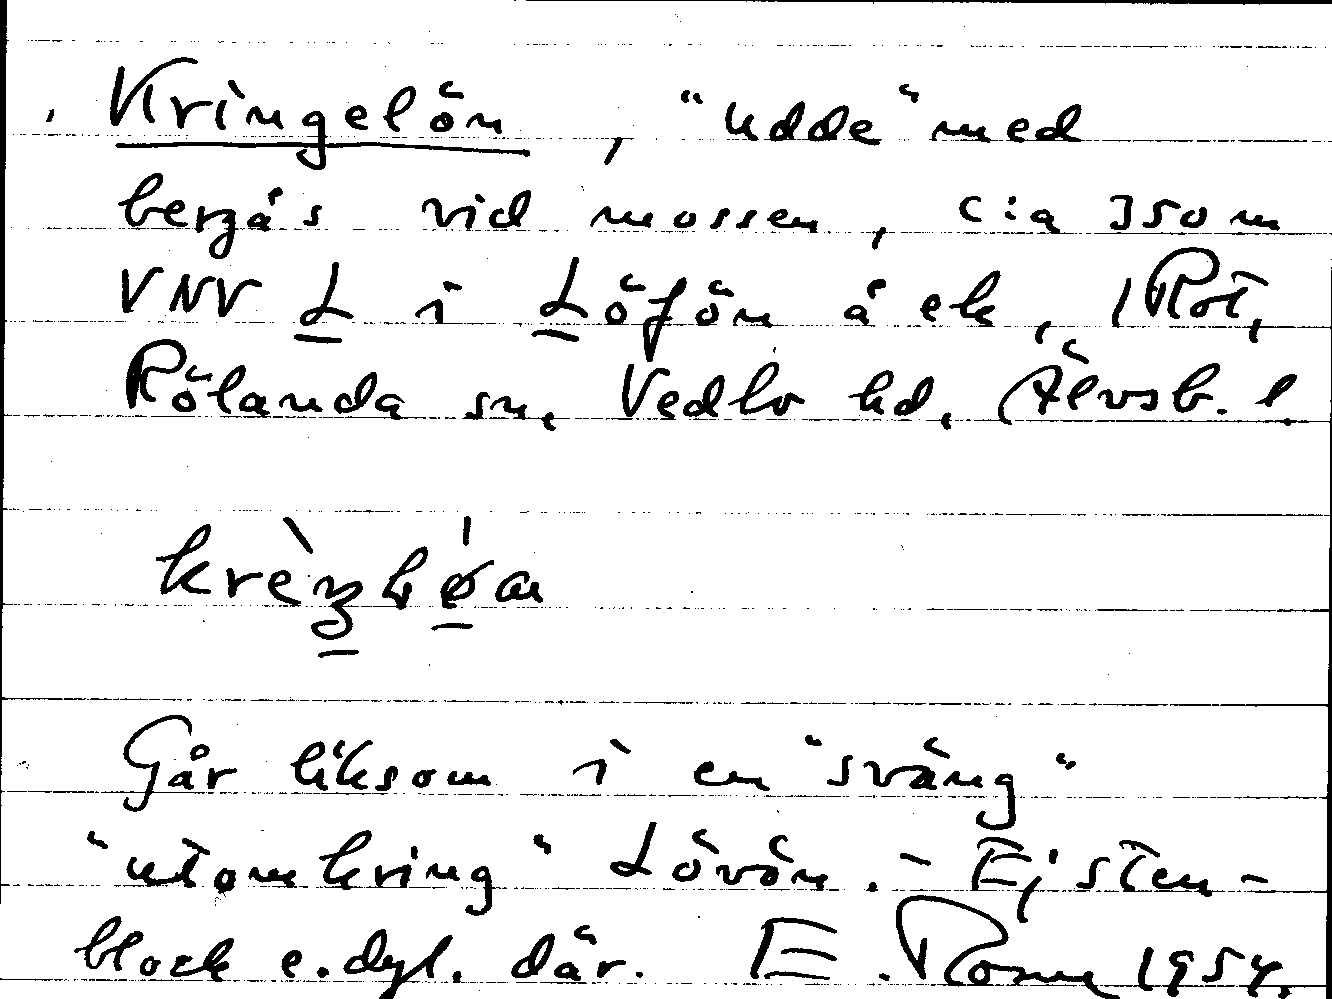 Kringelön, "udde" med
bergås vid mossen, c:a 350 m
VNV L i Löfön å ek, 1 Röt,
Rölanda sn, Vedbo hd, Älvsb. l.
Går liksom i en "sväng"
"utomkring" Lövön. - Ej sten-
block e.dyl. där. E. Rosm 1954.